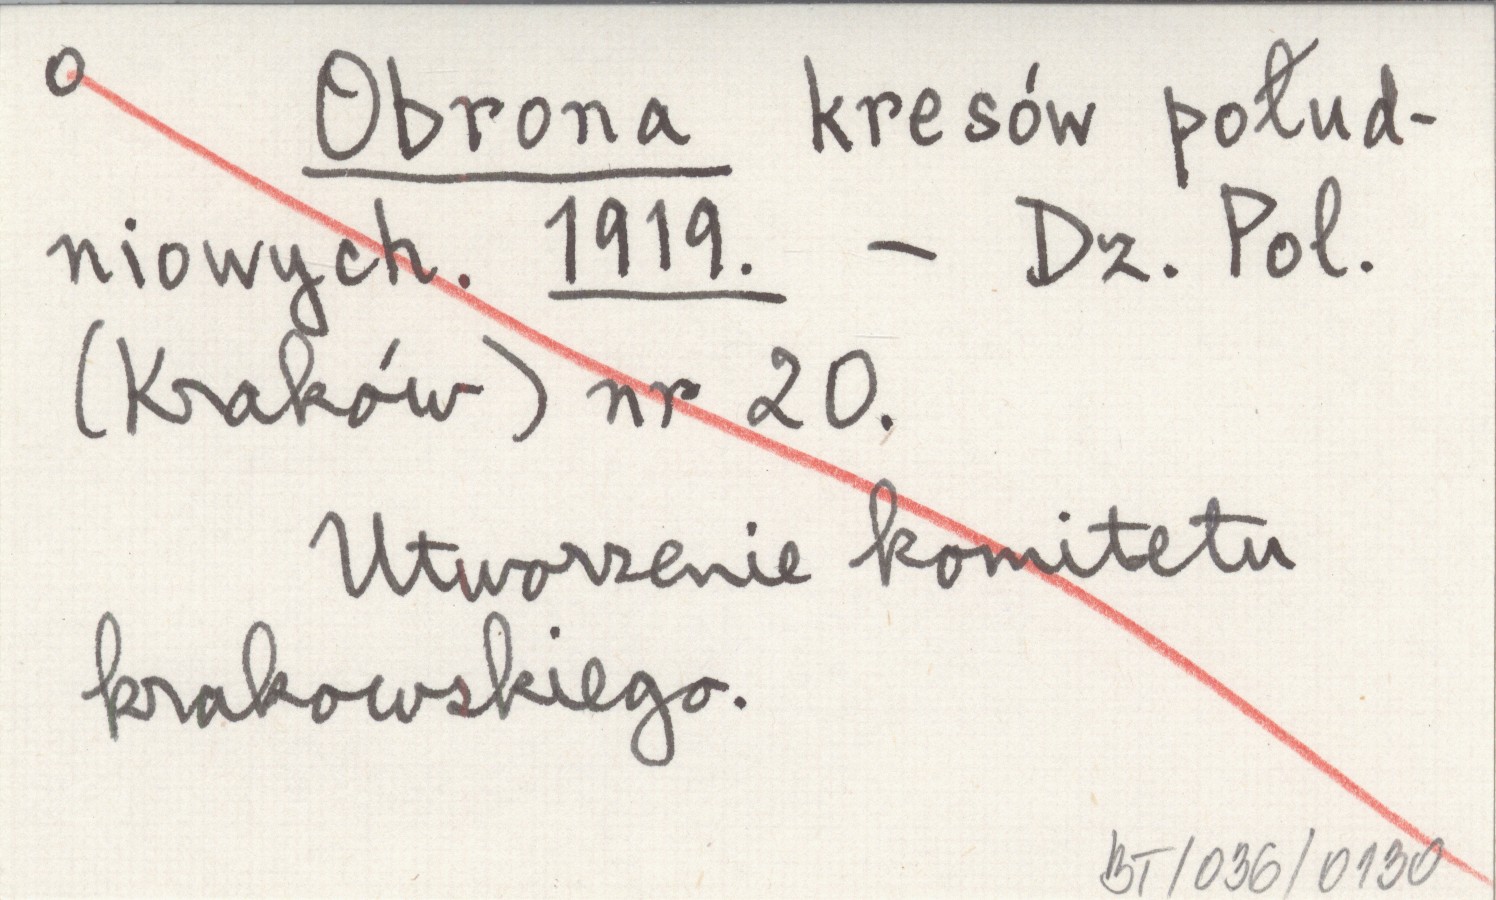 O
Obrona kresów połud-
niowych. 1919. – Dz. Pol.
(Kraków) nr 20.
Utworzenie komitetu
krakowskiego.
BT/036/0130